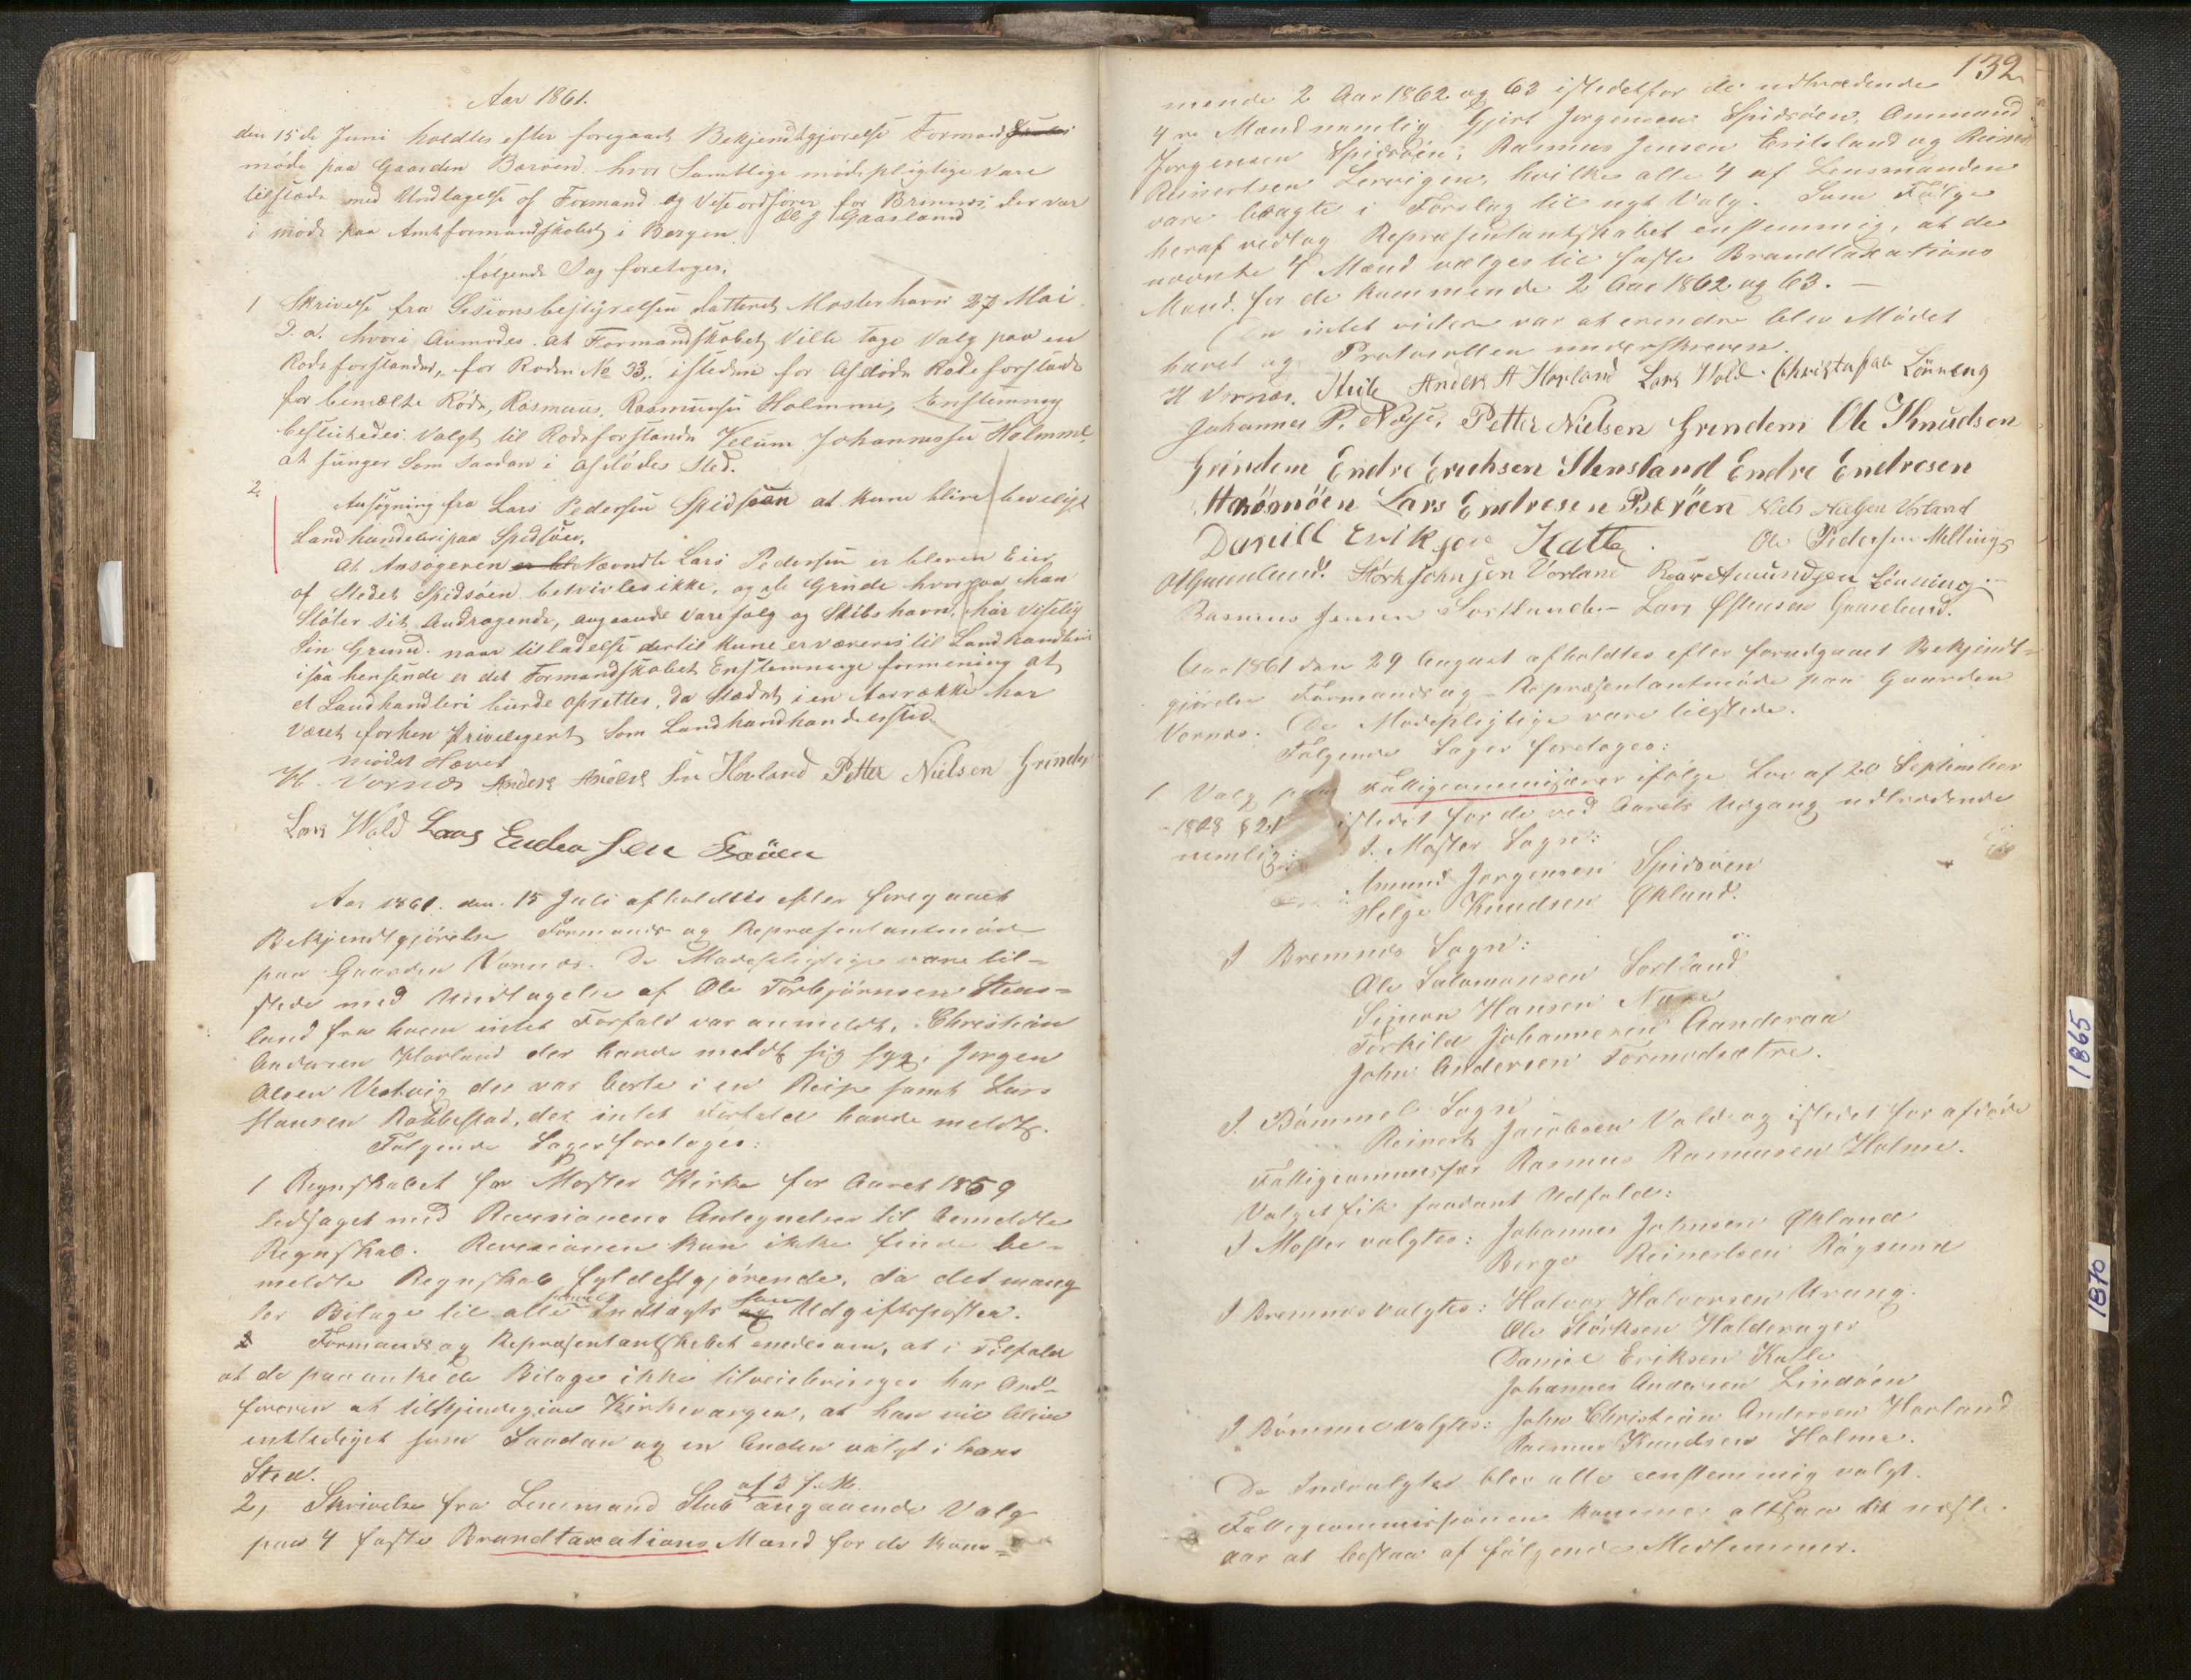 Aar 1861.
den 15de Juni holdtes efter foregaaet Bekjendtgjørelse Formandskabs
møde paa Gaarden Børøen hvor Samtlige mødepligtige vare
tilstæde med Undtagelse af Formand og Viseordfører for Brimnes, der var
i møde paa Amtformandskabet i Bergen. Ole J Gaasland
følgende Sag foretoges:
1 Skrivelse fra Sesionsbestyrelsen datteret Mosterhavn 27 Mai
D. a. hvori Anmodes at Formandskabet Ville tage Valg paa en
Rodeforstander, for Roden No 33, isteden for Afdøde Rodeforstander
for bemelte Rode, Rasmus Rasmusen Holmme, Enstemmig
besluttedes Valgt til Rodeforstander Johannessen Holmme,
at funger Som Saadan i Afdødes Sted.
2.
Ansøgning fra Lars Pedersen Spidsøen at kune blive beviliget
Landhandleri paa Spidsøen,
At Ansøgeren er bl Nævndte Lars Pedersen er bleven Eier
af Stedet Spidsøen betvivles ikke, og de Grunde hvorpaa han
Støter sit Andragende, angaaende Varesalg og Skibshavn, har Viselig
Sin Grund naar tilladelse dertil kune erværves til Landhandleri
isaa hensende er det Formandskabet Enstemmige formening at
et Landhandleri burde oprettes, da Stædet i en Aarrække har
Været forhen Privilegert Som Landhandhandlersted
mødet Hævet
H. Vornæs Anders Anders Sen Hovland Petter Nielsen Grindem
Lars Wold Lars Endre sen Børöen
Aar 1861. den 15 Juli afholdtes efter foregaaet
Bekjendtgjørelse Formands og Repræsentantmøde
paa Gaarden Vornæs. De Mødepligtige vare til=
stede med Undtagelse af Ole Torbjørnsen Stens=
land fra hvem intet Forfald var anmeldt, Christian
Andersen Hovland der havde meldt sig syg, Jørgen
Olsen Vestvig der var borte i en Reise samt Lars
Hansen Røkkestad, der intet Forfald havde meldt.
Følgende Sager foretoges:
1 Regnskabet for Moster Kirke for Aaret 1859
ledsaget med Revisionens Antegnelser til bemeldte
Regnskab. Revisionen kan ikke finde be-
meldte Regnskab fyldestgjørende, da det mang
ler Bilage til alle Indtægts og Udgiftsposter.
Formands og Repræsentantskabet enedes om, at i Tilfælde
at de paaankede Bilage ikke tilveiebringes har Ord=
føreren at tilkjendegive Kirkevargen, at han vil blive
entlediget som Saadan og en Anden valgt i hans
Sted.
af 3 f. M.
2, Skrivelse fra Lensmand Stub angaaende Valg
paa 4 faste Brandtaxations Mænd for de kom=
132
mende 2 Aar 1862 og 63 istedetfor de udtrædende
4re Mænd nemlig Gjert Jørgensen Spidsøen, Ammund
Jørgensen Spidsøen, Rasmus Jensen Eritsland og Reinert
Reinertsen Lervigen, hvilke alle 4 af Lensmanden
vare bragte i Forslag til nyt Valg. Som Følge
heraf vedtog Repræsentantskabet enstemmig, at de
nævnte 4 Mænd vælges til faste Brandtaxations
Mænd for de kommende 2 Aar 1862 og 63. —
Da intet videre var at erendre blev Mødet
hævet og Protocollen underskreven.
H Vornæs. Anders A Hovland Lars Wold Christofaa Lönning
Johannes P. Petter Nielsen Grindem Ole Knudsen
Grindem Endre Erichsen Stensland Endre Endresen
Lars Endresen Børöen Niels Vorland
Daniell Eriksen Katle. Ole Pedersen Mellingg
Størk Johnsen Vorland Amundsen Lönning.
Rasmus Jensen Sortlund — Lars Østensen Gaaselund.
Aar 1861 den 29 August afholdtes efter forudgaaet Bekjendt=
gjørelse Formands og Repræsentantmøde paa Gaarden
Vornæs. De Mødepligtige vare tilstede.
Følgende Sager foretoges:
1 Valg paa Fattigcommisærer ifølge Lov af 20 September
1848 § 21 istedet for de ved Aarets Udgang udtrædende
nemlig: I. Moster Sogn:
Amund Jørgensen Spidsøen
Helge Knudsen Økland.
I Bremnes Sogn:
Ole Salamonsen Sortland
Simon Hansen
Torkild Johannesen Aanderaa
John Andersen Tormodsætre.
I. Bømmel Sogn
Reinert Jacobsen Vold og istedet for afdøde
Fattigcommissær Rasmus Rasmusen Holme.
Valget fik saadant Udfald:
I Moster valgtes: Johannes Johnsen Økland
Berge Reinertsen Røgsund
I Bremnes valgtes: Halvor Halvorsen Urang.
Ole Størksen Halderager
Daniel Eriksen Katle
Johannes Andersen Lindøen
I Bømmel valgtes: John Christian Andersen Hovland
Rasmus Knudsen Holme.
De Indvalgte blev alle eenstemmig valgt.
Fattigcommissionen kommer altsaa til næste
aar at bestaa af følgende Medlemmer.
1865
1870